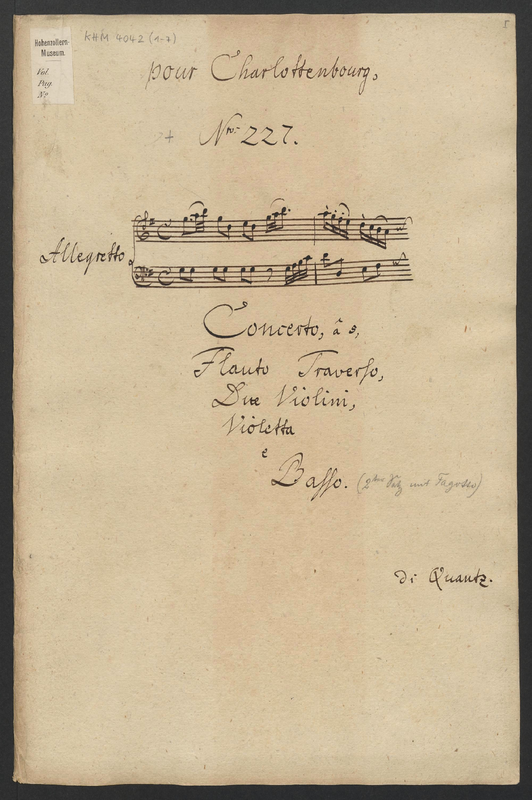 KHM 4042 (1-7)
Hohenzollern-
Museum.
Vol.
Pag.
No.
pour Charlottenbourg,
Nro. 227.
Allegretto
Concerto, â 5,
Flauto Traverso,
Due Violini,
Violetta
e
Basso. (2ter Satz mit Fagotto)
di Quantz.